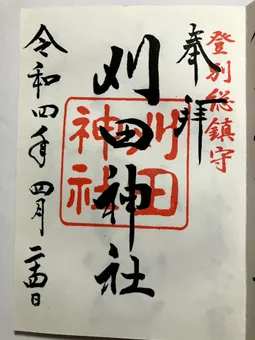 登別総鎮守
奉拝
刈田神社
刈田
神社
令和四年四月二四日